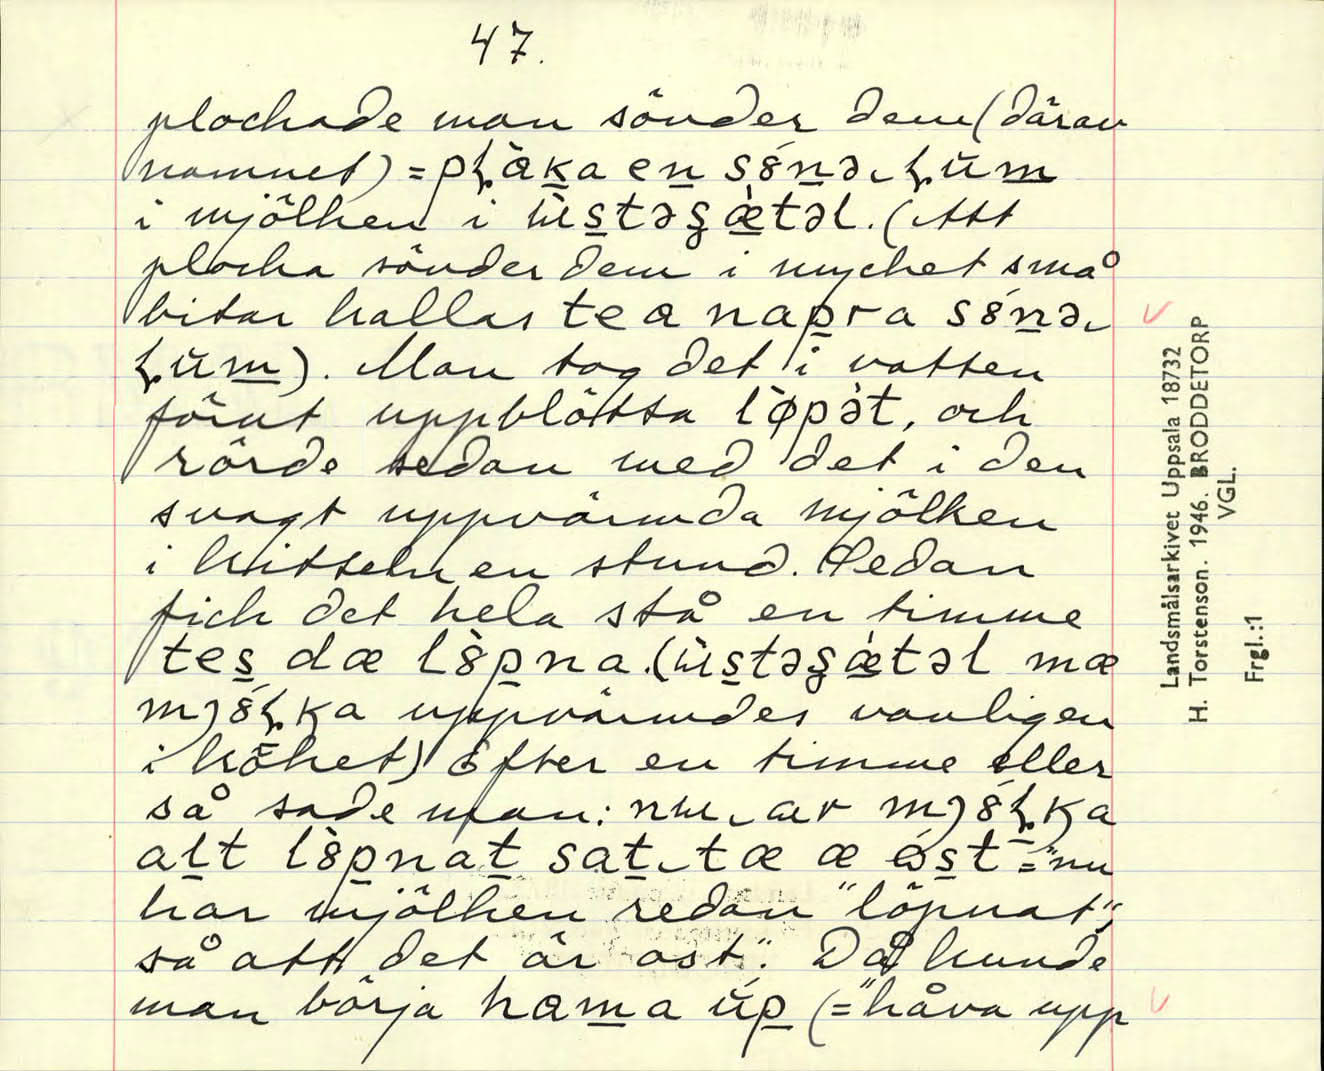 47.
plockade man sönder dem (därav
namnet) = pɽàka en sȣ́nə ɽŭm
i mjölken i ɯ̀stəgǽtəl. (Att
plocka sönder dem i mycket små
bitar kallas te a napra sȣ́nə
ɽŭm). Man tog det i vatten
förut uppblötta lø̀pət, och
rörde sedan med det i den
svagt uppvärmda mjölken
i kitteln en stund. Sedan
fick det hela stå en timme
tes dæ lȣ̀pna. (ɯ̀stəgǽtəl mæ
mjȣ́ɽka uppvärmdes vanligen
i köket) Efter en timme eller
så sade man: nɯ ar mjȣ́ɽka
alt lȣ̀pnat sat tæ æ óst = "nu
har mjölken redan "löpnat",
så att det är ost". Då kunde
man börja hama úp (= "håva upp
Landsmålsarkivet Uppsala 18732
H. Torstenson. 1946. BRODDETORP
VGL.
Frgl.:1